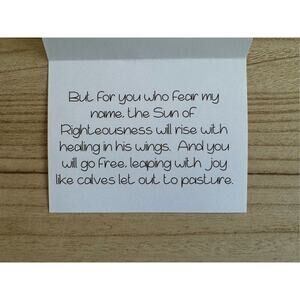 But for you who fear my
name, the Sun of
Righteousness will rise with
healing in his wings. And you
will go free, leaping with joy
like calves let out to pasture.